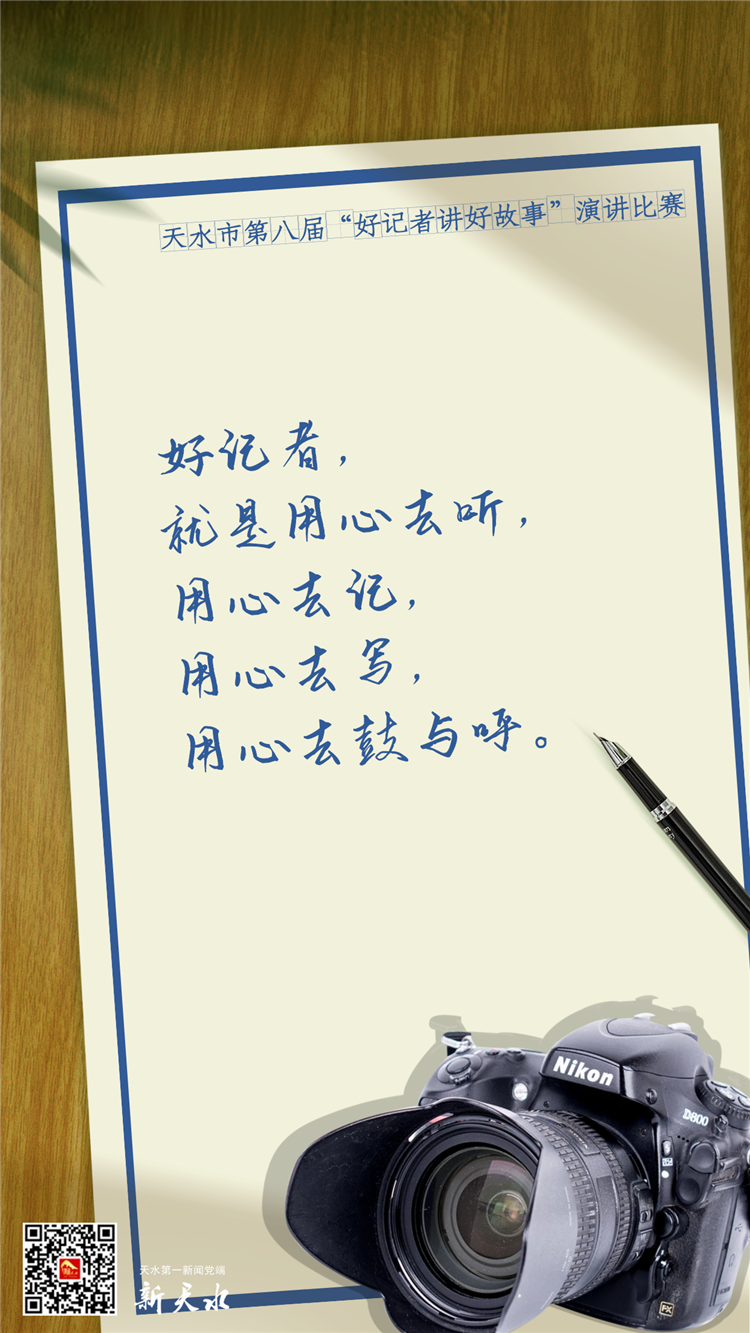 天水市第八届“好记者讲好故事”演讲比赛
好记者，
就是用心去听，
用心去记，
用心去写，
用心去鼓与呼。
Nikon
D800
FX
天水第一新闻党端
新天水